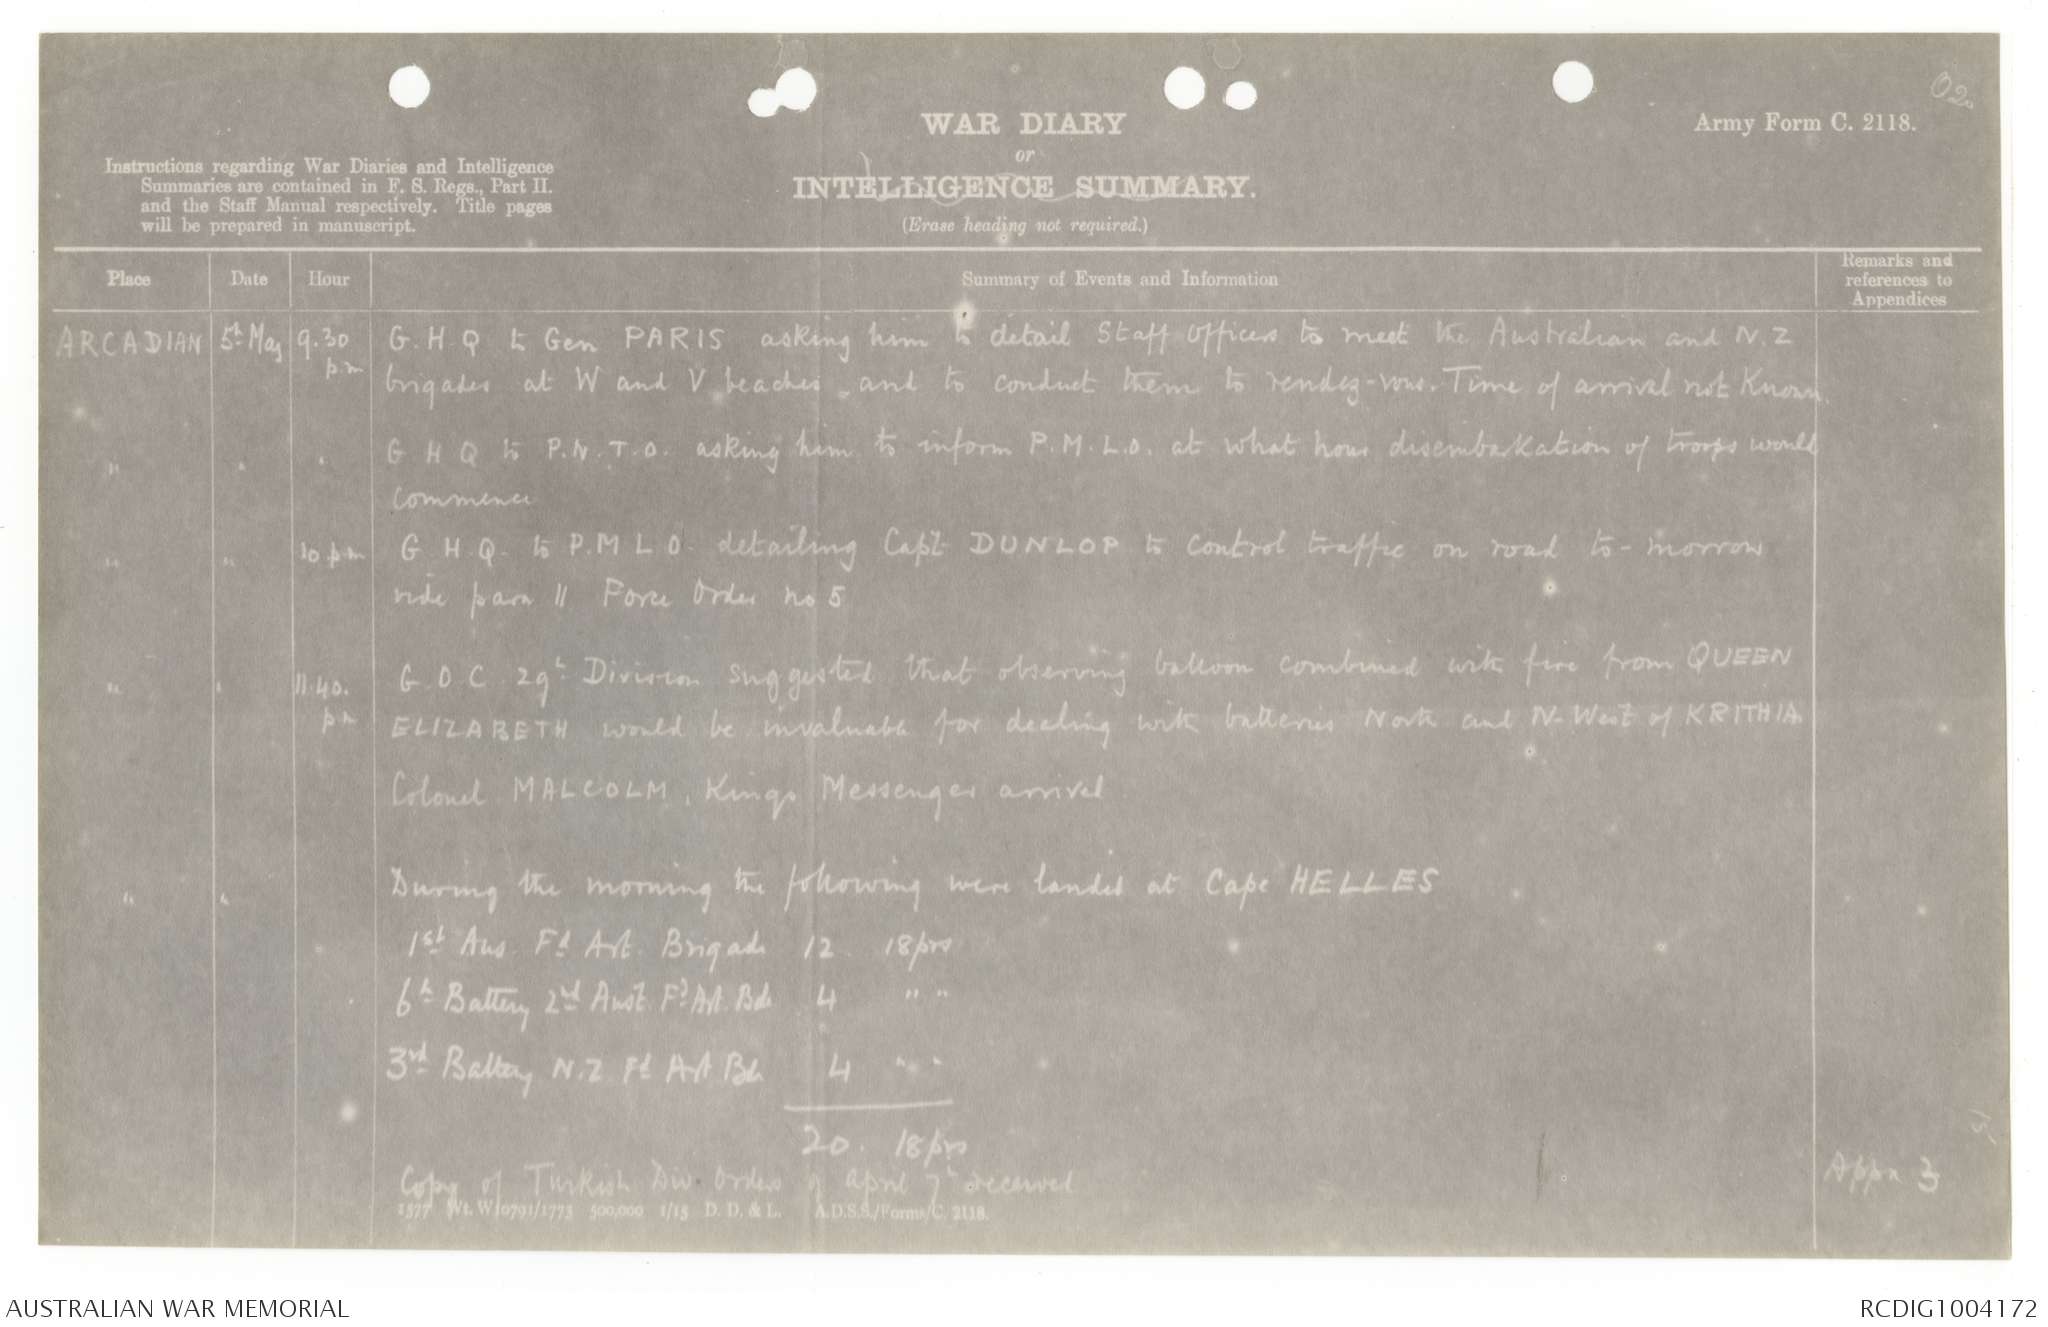 02.
WAR DIARY
or
INTELLIGENCE SUMMARY.
(Erase heading not required.)
Army Form C. 2118.
Instructions regarding War Diaries and Intelligence
Summaries are contained in F. S. Regs., Part II.
and the Staff Manual respectively. Title pages
will be prepared in manuscript.
Place Date Hour Summary of Events and Information Remarks and references to Appendices
ARCADIAN 5th May 9.30 p.m G.H.Q to Gen PARIS asking him to detail Staff Officers to meet the Australian and N.Z
brigades at W and V beaches and to conduct them to rendez-vous. Time of arrival not known.
" " " G H Q to P.N.T.O. asking him to inform P.M.L.O. at what hour disembarkation of troops would
commence
" " 10 p.m G.H.Q. to P.M L O. detailing Capt DUNLOP to control traffic on road to-morrow
vide para 11 Force Order no 5
" " 11.40. pm G.O.C. 29th Division suggested that observing balloon combined with fire from QUEEN
ELIZABETH would be invaluable for dealing with batteries North and N-West of KRITHIA.
Colonel MALCOLM, Kings Messenger arrived
" " During the morning the following were landed at Cape HELLES
1st Aus. Fd Art. Brigade 12. 18prs
6th Battery 2nd Aust. Fd Art. Bde 4 " "
3rd Battery N.Z Fd Art Bde 4 " "
20. 18prs
Copy of Turkish Div. Orders of April 7th received Appx 3
1577 Wt. W10791/1773 500,000 1/15 D. D. & L. A.D.S.S./Forms/C. 2118.
AUSTRALIAN WAR MEMORIAL
RCDIG1004172